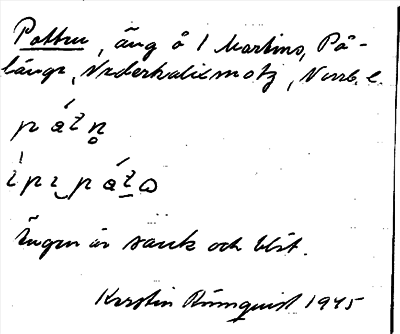 Potten, äng å 1 Martins, På-
längs, Nederkalix motz, Norrb. l.
p á t n̥
i p i p á t ɷ
Ängen är sank och blöt.
Kerstin Rönnquist 1945